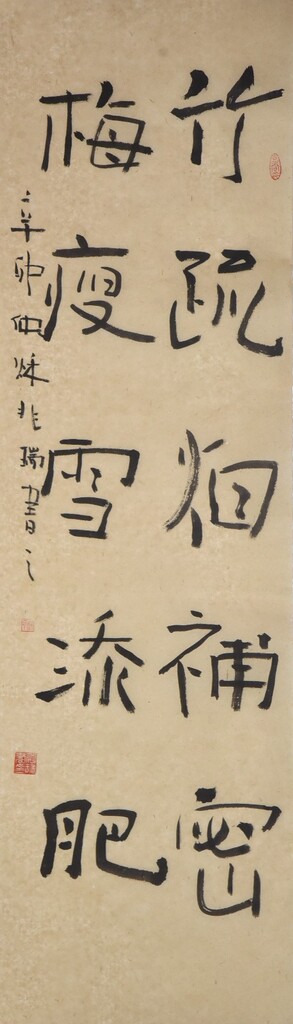 竹疏烟補密
梅瘦雪添肥
辛卯仲秋兆瑞書之